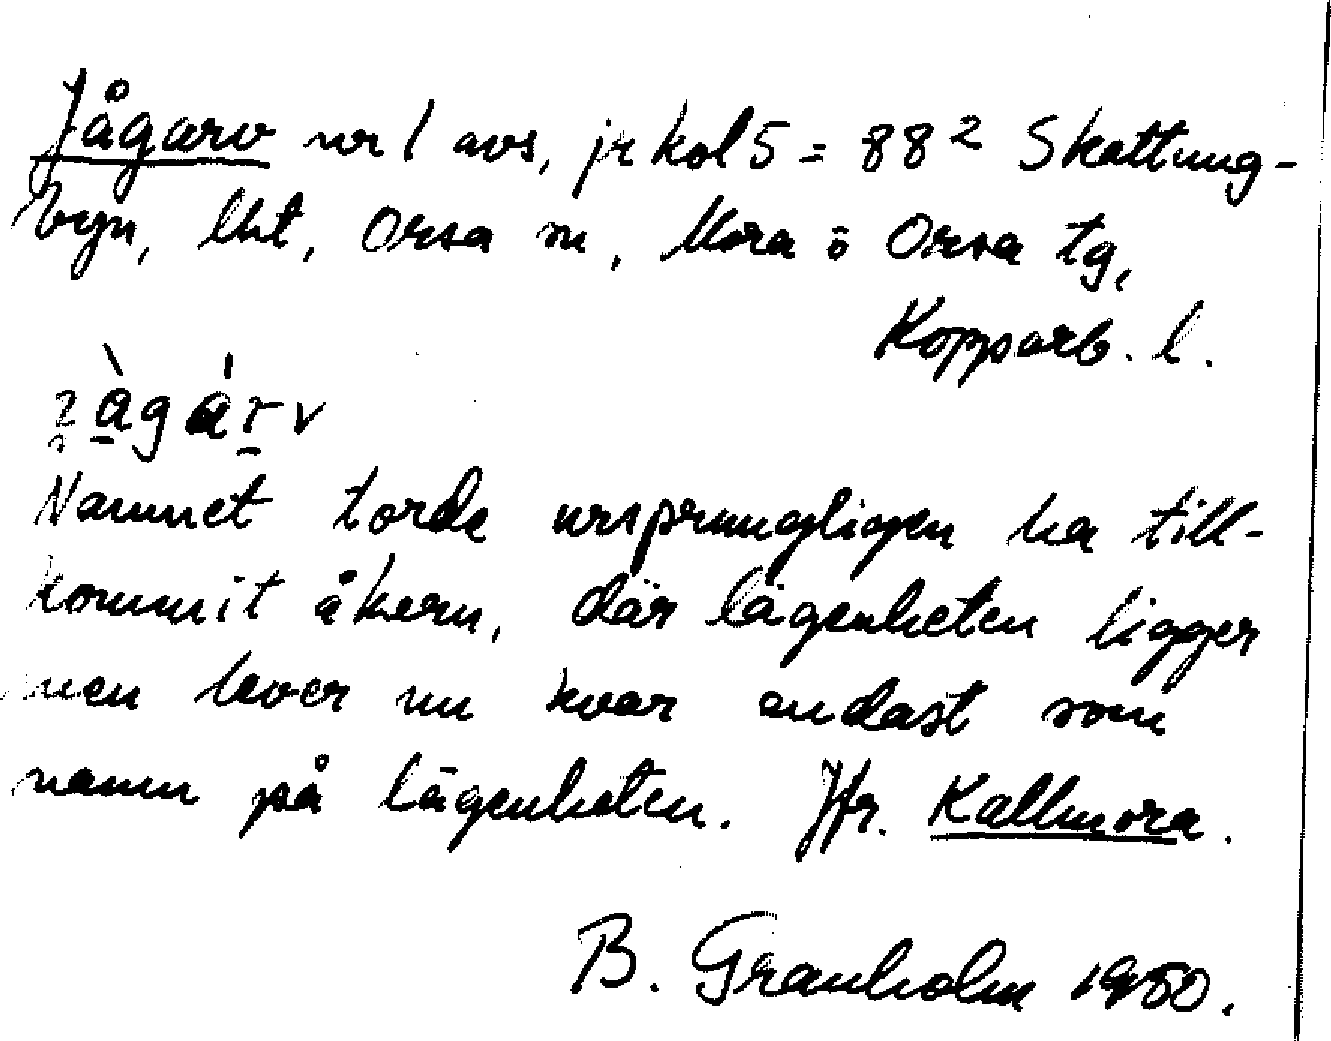 Jågarv nr 1 avs, jr kol 5 = 88² Skattung-
byn, lht, Orsa sn, Mora o Orsa tg,
Kopparb. l.
Namnet torde ursprungligen ha till-
kommit åkern, där lägenheten ligger
men lever nu kvar endast som
namn på lägenheten. Jfr. Kallmora.
B. Granholm 1950.